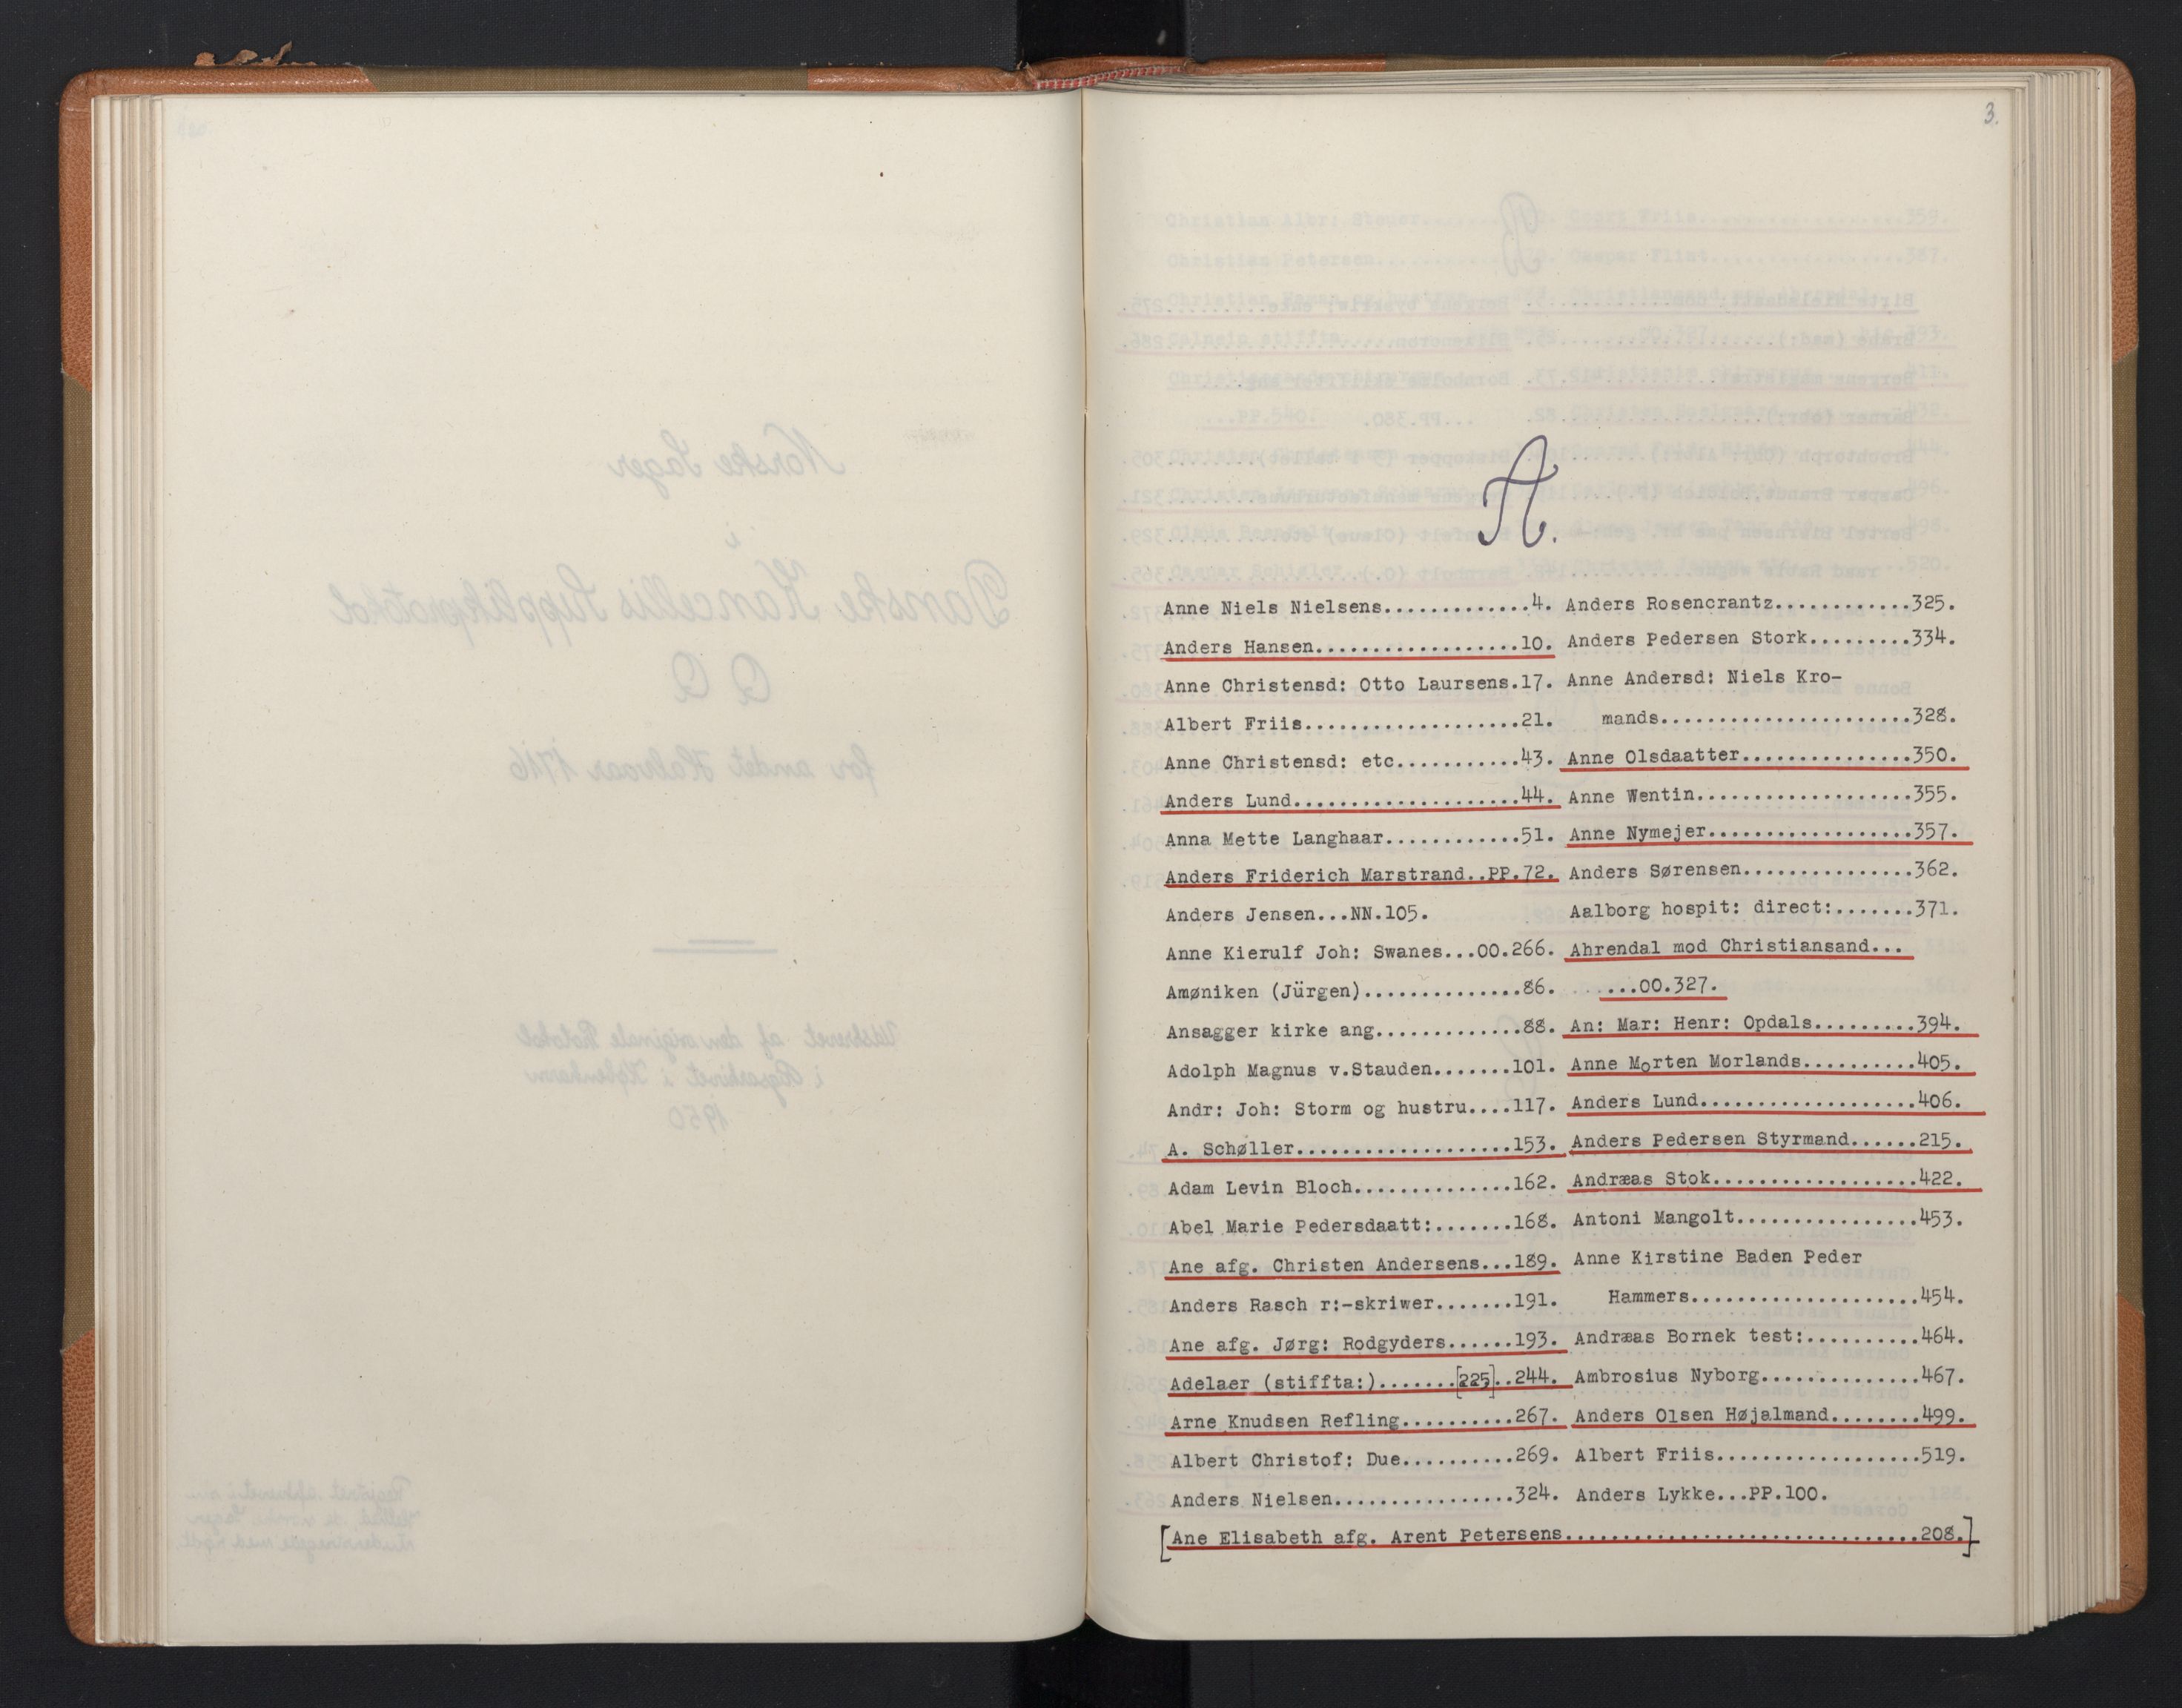 3.
A.
Anne Niels Nielsens.............4.
Anders Hansen..................10.
Anne Christensd: Otto Laursens.17.
Albert Friis...................21.
Anne Christensd: etc...........43.
Anders Lund....................44.
Anna Mette Langhaar............51.
Anders Friderich Marstrand..PP.72.
Anders Jensen...NN.105.
Anne Kierulf Joh: Swanes...OO.266.
Amøniken (Jürgen)..............86.
Ansagger kirke ang.............88.
Adolph Magnus v.Stauden.......101.
Andr: Joh: Storm og hustru....117.
A. Schøller...................153.
Adam Levin Bloch..............162.
Abel Marie Pedersdaatt:.......168.
Ane afg. Christen Andersens...189.
Anders Rasch r:-skriwer.......191.
Ane afg. Jørg: Rodgyders......193.
Adelaer (stiffta:).......[225]..244.
Arne Knudsen Refling..........267.
Albert Christof: Due..........269.
Anders Nielsen................324.
Anders Rosencrantz............325.
Anders Pedersen Stork.........334.
Anne Andersd: Niels Kro-
mands......................328.
Anne Olsdaatter...............350.
Anne Wentin...................355.
Anne Nymejer..................357.
Anders Sørensen...............362.
Aalborg hospit: direct:.......371.
Ahrendal mod Christiansand...
...OO.327.
An: Mar: Henr: Opdals.........394.
Anne Morten Morlands..........405.
Anders Lund...................406.
Anders Pedersen Styrmand......215.
Andræas Stok..................422.
Antoni Mangolt................453.
Anne Kirstine Baden Peder
Hammers....................454.
Andræas Bornek test:..........464.
Ambrosius Nyborg..............467.
Anders Olsen Højalmand........499.
Albert Friis..................519.
Anders Lykke...PP.100.
[Ane Elisabeth afg. Arent Petersens...............................208.]